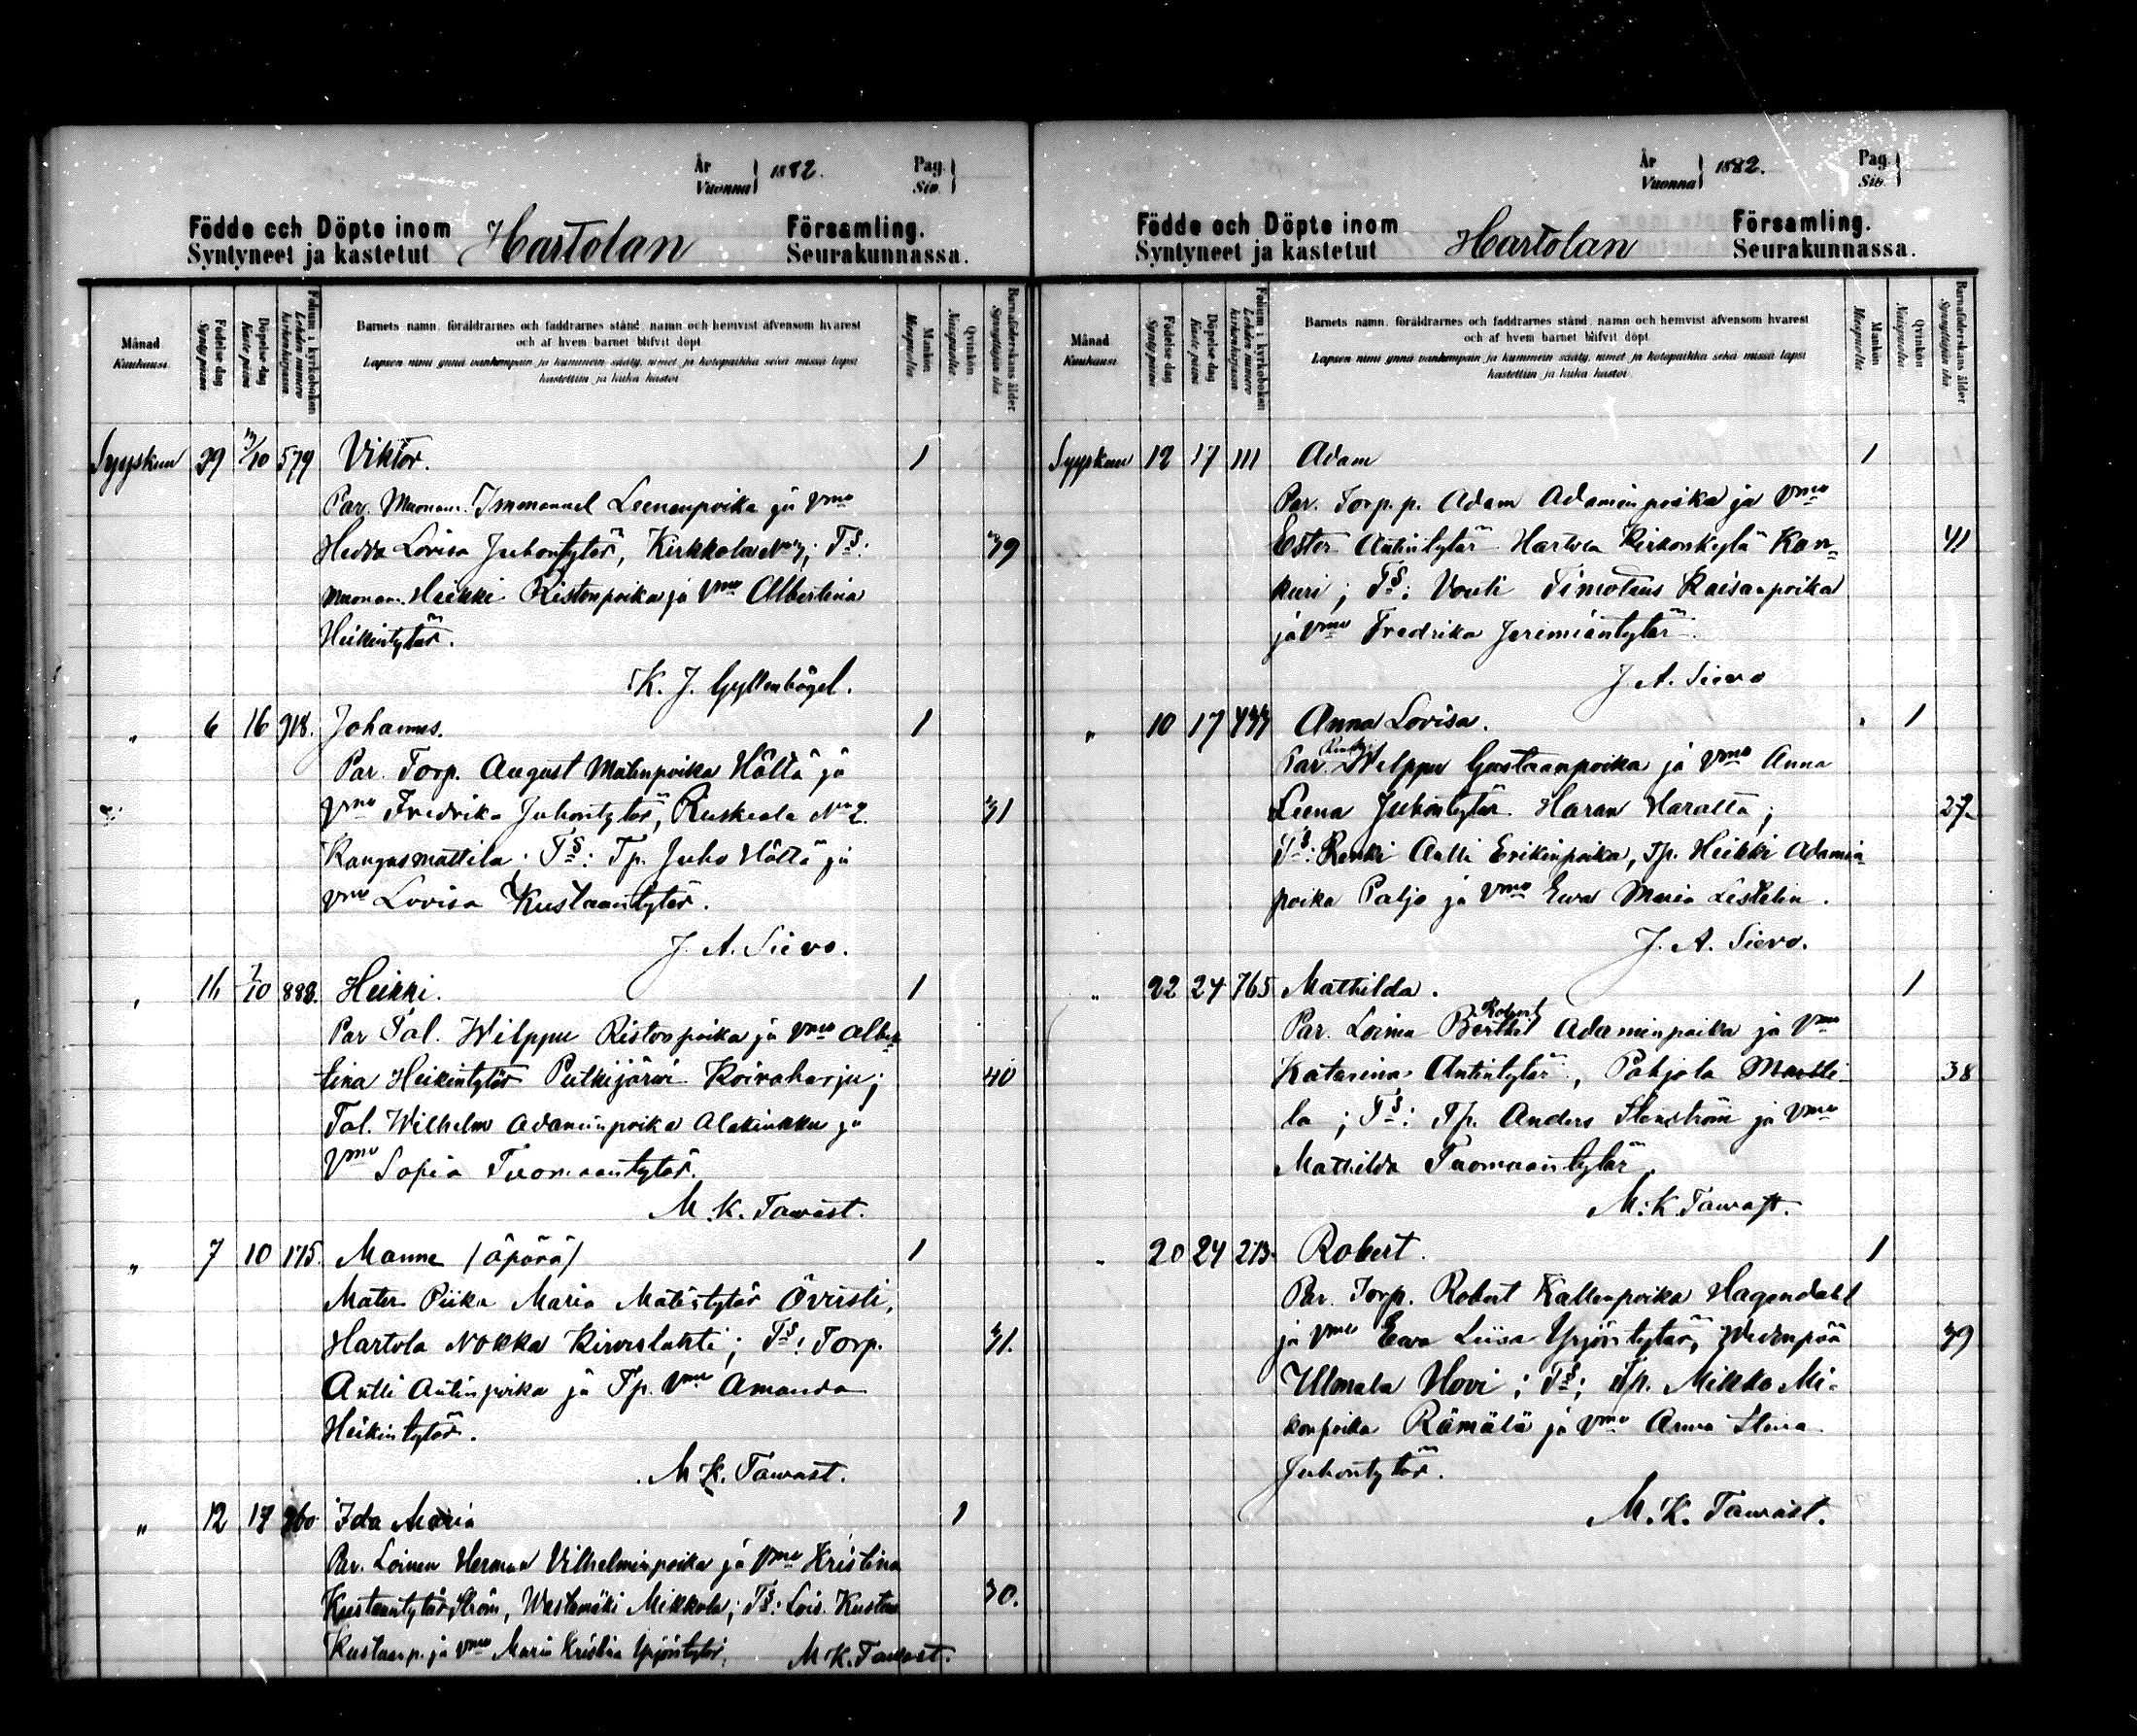 År
Vuonna 1882.
Pag.
Siv.
Födde och Döpte inom Hartolan Församling.
Syntyneet ja kastetut Seurakunnassa.
Månad
Kuukausi
Födelse dag
Synty päivä
Döpelse dag
Kaste päivä
Folium i kyrkoboken
Lehden numero kirkonkirjassa
Barnets namn, föräldrarnes och faddrarnes stånd, namn och hemvist äfvensom hvarest
och af hvem barnet blifvit döpt
Lapsen nimi ynnä vanhempain ja kummein sääty, nimet ja kotopaikka sekä missä lapsi
kastettiin ja kuka kastoi
Mankön
Miespuolta
Qvinkön
Naispuolta
Barnaföderskans ålder
Synnyttäjän ikä
Syyskuu 29 /10 579 Viktor. 1
Par. Muonam. Immanuel Leenanpoika ja Vmo
Hedda Lovisa Juhontytär, Kirkkola; Ts: 39
Muonam. Heikki Ristonpoika ja Vmo Albertina
Heikintytär.
K. J. Gyllenbögel.
" 6 16 918. Johannes. 1
Par. Torp. August Matinpoika Hölttä ja
Vmo Fredrika Juhontytär, Ruskeala No 2. 31
Kangasmattila. Ts: Tp. Juho Hölttä ja
Vmo Lovisa Kustaantytär.
J. A. Sievo.
" 16 1/10 888. Heikki. 1
Par Tal. Wilppu Ristonpoika ja Vmo Alber
tina Heikintytär Putkijärvi Koivaharju; 40
Tal. Wilhelm Adaminpoika Alakinkku ja
Vmo Sofia Tuomaantytär.
M. K. Tawast.
" 7 10 175. Manne (äpärä) 1
Mater Piika Maria Matintytär Översti,
Hartola Nokka Kirveslahti; Ts: Torp. 31.
Antti Antinpoika ja Tp. Vmo Amanda
Heikintytär.
M. K. Tawast.
" 12 17 960 Ida Maria 1
Par. Loinen Herman Vilhelminpoika ja Vmo Kristina
Kustaantytär Ström, Westamäki Mikkola; Ts: Lois. Kustaa 30.
Kustaanp. ja Vmo Maria Kristina Yrjöntytär, M. K. Tawast.
År
Vuonna 1882.
Pag.
Siv.
Födde och Döpte inom Hartolan Församling.
Syntyneet ja kastetut Seurakunnassa.
Månad
Kuukausi
Födelse dag
Synty päivä
Döpelse dag
Kaste päivä
Folium i kyrkoboken
Lehden numero kirkonkirjassa
Barnets namn, föräldrarnes och faddrarnes stånd, namn och hemvist äfvensom hvarest
och af hvem barnet blifvit döpt
Lapsen nimi ynnä vanhempain ja kummein sääty, nimet ja kotopaikka sekä missä lapsi
kastettiin ja kuka kastoi.
Mankön
Miespuolta
Qvinkön
Naispuolta
Barnaföderskans ålder
Synnyttäjän ikä
Syyskuu 12 17 111 Adam 1
Par. Torp. p. Adam Adaminpoika ja Vmo
Ester Antintytär Hartola Kirkonkylä Kan= 41
kuri; Ts: Vouti Timoteus Kaisanpoika
ja Vmo Fredrika Jeremiäntytär.
J. A. Sievo
" 10 17 Anna Lovisa. 1
Par. Wilppu Gustaanpoika ja Vmo Anna
Leena Juhontytär Haran Haratta; 27.
Ts: Renki Antti Erikinpoika, Tp. Heikki Adamin
poika Paljo ja Vmo Ewa Maria Lestelin.
J. A. Sievo.
" 22 24 765 Mathilda. 1
Robert
Par. Loinen Berthel Adaminpoika ja Vmo
Katarina Antintytär, Pohjola Martti= 38
la; Ts: Tp. Anders Stenström ja Vmo
Mathilda Tuomaantytär.
M. K. Tawast.
" 20 24 273. Robert. 1
Par. Torp. Robert Kallenpoika Hagendahl
ja Vmo Ewa Liisa Yrjöntytär, Wedenpää 39
Ullmala Hovi; Ts; Tp. Mikko Mi=
konpoika Rämälä ja Vmo Anna Stina
Juhontytär.
M. K. Tawast.